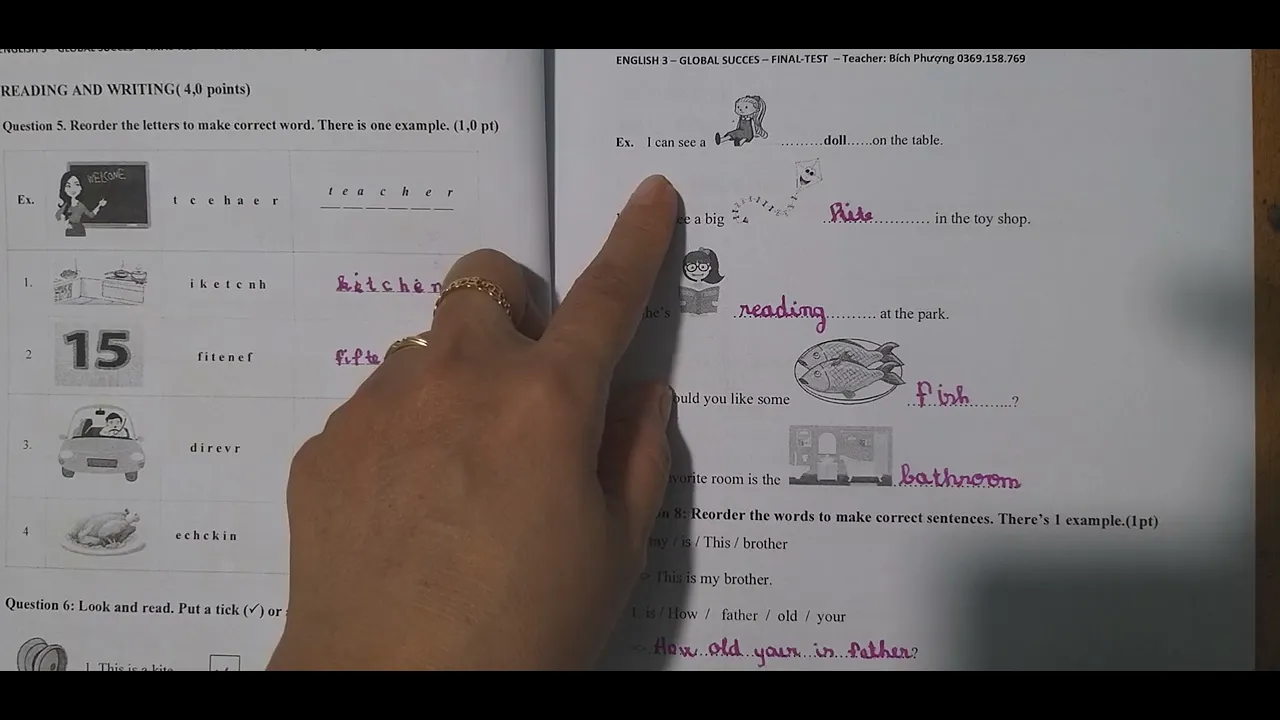 READING AND WRITING( 4,0 points)
Question 5. Reorder the letters to make correct word. There is one example. (1,0 pt)
Ex.
WELCOME
t c e h a e r
t e a c h e r
1.
i k e t c n h
kitchen
2
15
f i t e n e f
fifte
3.
d i r e v r
4
e c h c k i n
Question 6: Look and read. Put a tick (✓) or
1. This is a kite
ENGLISH 3 – GLOBAL SUCCES – FINAL-TEST – Teacher: Bích Phượng 0369.158.769
Ex. I can see a ………doll……on the table.
ee a big Kite ………… in the toy shop.
he's reading ……… at the park.
ould you like some fish ………?
vorite room is the bathroom
n 8: Reorder the words to make correct sentences. There's 1 example.(1pt)
my / is / This / brother
This is my brother.
1. is / How / father / old / your
How old your is father?